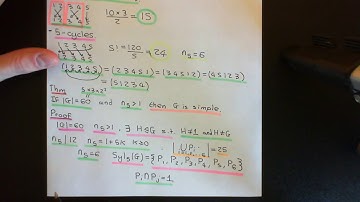 3 4 5
10×3/2 = 15
5-cycles
1 2 3 4 5
5! = 120/5 = 24 n₅=6
(1 2 3 4 5) = (2 3 4 5 1) = (3 4 5 1 2) = (4 5 1 2 3)
= (5 1 2 3 4)
Thm
If |G|=60 and n₅>1 then G is simple.
Proof
|G|=60 n₅>1 ∃ H≤G s.t. H≠1 and H≠G
n₅ | 12 n₅=1+5k k≥0 |∪Pᵢ| = 25
n₅=6 Syl₅(G)={P₁, P₂, P₃, P₄, P₅, P₆}
Pᵢ∩Pⱼ=1